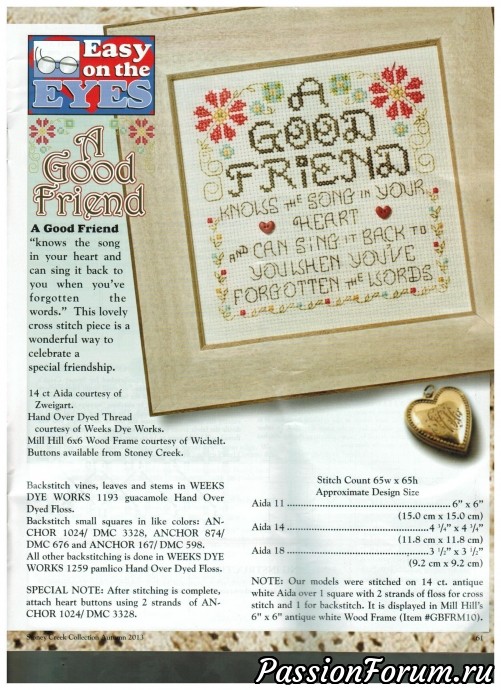 Easy
on the
EYES
A
Good
Friend
A Good Friend
"knows the song
in your heart and
can sing it back to
you when you've
forgotten the
words." This lovely
cross stitch piece is a
wonderful way to
celebrate a
special friendship.
14 ct Aida courtesy of
Zweigart.
Hand Over Dyed Thread
courtesy of Weeks Dye Works.
Mill Hill 6x6 Wood Frame courtesy of Wichelt.
Buttons available from Stoney Creek.
A
GOOD
FRIEND
KNOWS THE SONG IN YOUR
HEART
AND CAN SING IT BACK TO
YOU WHEN YOU'VE
FORGOTTEN THE WORDS
Backstitch vines, leaves and stems in WEEKS
DYE WORKS 1193 guacamole Hand Over
Dyed Floss.
Backstitch small squares in like colors: AN-
CHOR 1024/ DMC 3328, ANCHOR 874/
DMC 676 and ANCHOR 167/ DMC 598.
All other backstitching is done in WEEKS DYE
WORKS 1259 pamlico Hand Over Dyed Floss.
SPECIAL NOTE: After stitching is complete,
attach heart buttons using 2 strands of AN-
CHOR 1024/ DMC 3328.
Stitch Count 65w x 65h
Approximate Design Size
Aida 11 ........ 6" x 6"
(15.0 cm x 15.0 cm)
Aida 14 ........ 4 3/4" x 4 3/4"
(11.8 cm x 11.8 cm)
Aida 18 ........ 3 1/2" x 3 1/2"
(9.2 cm x 9.2 cm)
NOTE: Our models were stitched on 14 ct. antique
white Aida over 1 square with 2 strands of floss for cross
stitch and 1 for backstitch. It is displayed in Mill Hill's
6" x 6" antique white Wood Frame (Item #GBFRM10).
Stoney Creek Collection Autumn 2013
PassionForum.ru